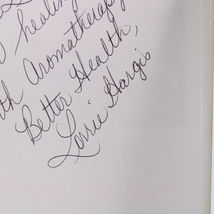 healing
Aromatherapy
Better Health,
Lorrie Hargis